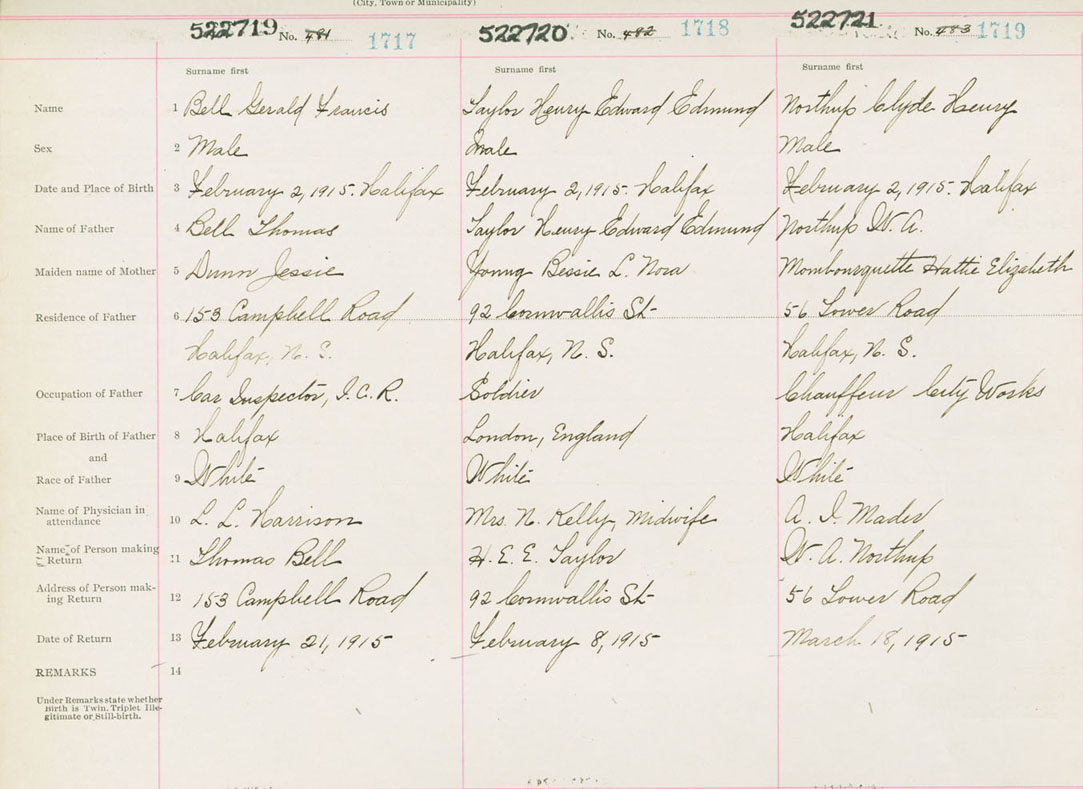 (City, Town or Municipality)
522719 No. 481 1717 522720 No. 482 1718 522721 No. 483 1719
Surname first Surname first Surname first
Name 1 Bell Gerald Francis Taylor Henry Edward Edmund Northup Clyde Henry
Sex 2 Male Male Male
Date and Place of Birth 3 February 2, 1915. Halifax February 2, 1915. Halifax February 2, 1915. Halifax
Name of Father 4 Bell Thomas Taylor Henry Edward Edmund Northup W. A.
Maiden name of Mother 5 Dunn Jessie Young Bessie L. Nora Mombourquette Hattie Elizabeth
Residence of Father 6 153 Campbell Road 92 Cornwallis St 56 Lower Road
Halifax, N. S. Halifax, N. S. Halifax, N. S.
Occupation of Father 7 Car Inspector, I. C. R. Soldier Chauffeur City Works
Place of Birth of Father 8 Halifax London, England Halifax
and
Race of Father 9 White White White
Name of Physician in attendance 10 L. L. Harrison Mrs. N. Kelly, Midwife A. I. Mader
Name of Person making Return 11 Thomas Bell H. E. E. Taylor W. A. Northup
Address of Person mak-
ing Return 12 153 Campbell Road 92 Cornwallis St 56 Lower Road
Date of Return 13 February 21, 1915 February 8, 1915 March 18, 1915
REMARKS 14
Under Remarks state whether
Birth is Twin, Triplet Ille-
gitimate or Still-birth.